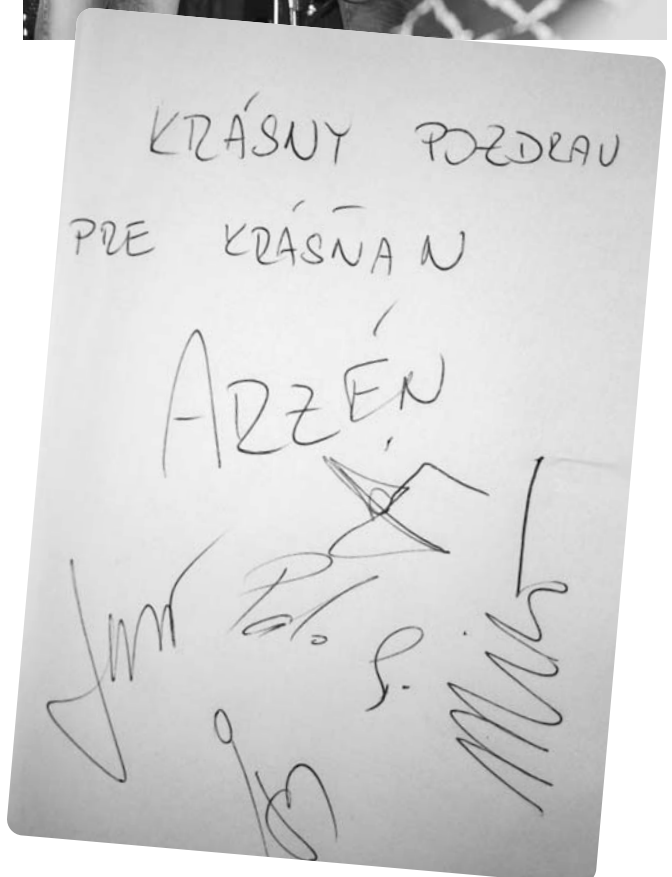 KRÁSNY POZDRAV
PRE KRÁSŇAN
ARZÉN
Palo